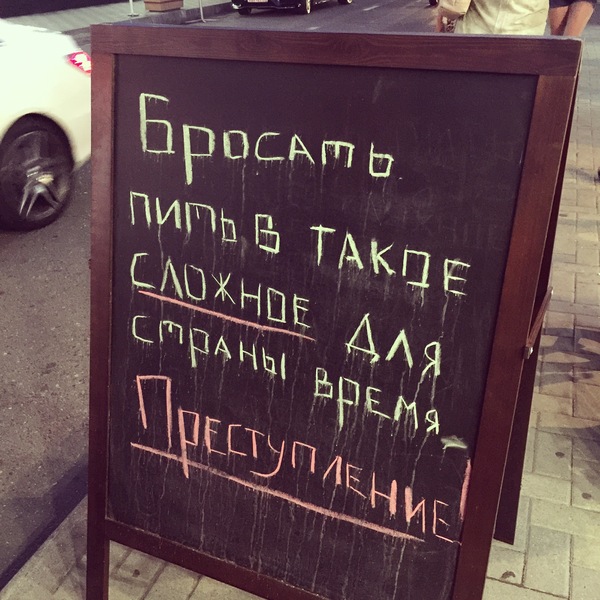 Бросать
пить в такое
сложное для
страны время
Преступление!